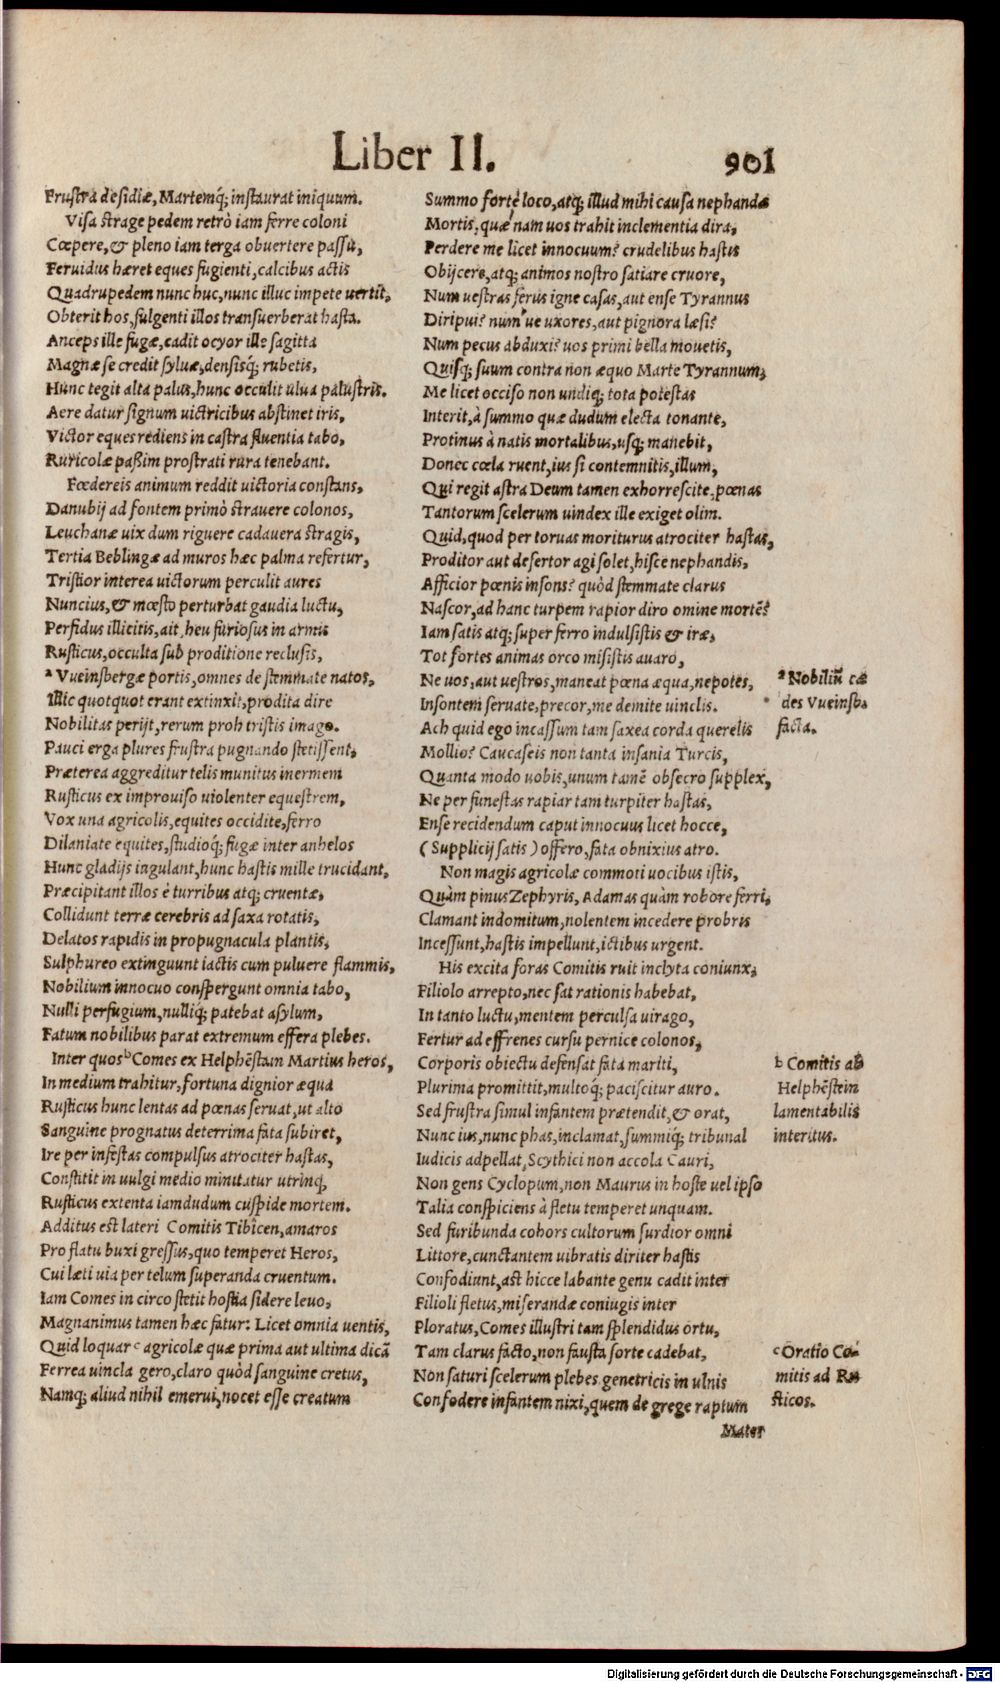 Liber II. 901
Frustra desidiæ, Martemq́; instaurat iniquum.
Visa strage pedem retrò iam ferre coloni
Cœpere, & pleno iam terga obuertere passu,
Feruidus hæret eques fugienti, calcibus actis
Quadrupedem nunc huc, nunc illuc impete uertit,
Obterit hos, fulgenti illos transuerberat hasta.
Anceps ille fugæ, cadit ocyor ille sagitta
Magnæ se credit syluæ, densisq́; rubetis,
Hunc tegit alta palus, hunc occulit ulua palustris.
Aere datur signum uictricibus abstinet iris,
Victor eques rediens in castra fluentia tabo,
Ruricolæ paßim prostrati rura tenebant.
Fœdereis animum reddit uictoria constans,
Danubij ad fontem primò strauere colonos,
Leuchanæ uix dum riguere cadauera stragis,
Tertia Beblingæ ad muros hæc palma refertur,
Tristior interea uictorum perculit aures
Nuncius, & mœsto perturbat gaudia luctu,
Perfidus illicitis, ait, heu furiosus in armis
Rusticus, occulta sub proditione reclusis,
ᵃ Vueinsbergæ portis, omnes de stemmate natos,
Illic quotquot erant extinxit, prodita dire
Nobilitas perijt, rerum proh tristis imago.
Pauci erga plures frustra pugnando stetissent,
Præterea aggreditur telis munitus inermem
Rusticus ex improuiso uiolenter equestrem,
Vox una agricolis, equites occidite, ferro
Dilaniate equites, studioq́; fugæ inter anhelos
Hunc gladijs iugulant, hunc hastis mille trucidant,
Præcipitant illos è turribus atq; cruentæ,
Collidunt terræ cerebris ad saxa rotatis,
Delatos rapidis in propugnacula plantis,
Sulphureo extinguunt iactis cum puluere flammis,
Nobilium innocuo conspergunt omnia tabo,
Nulli perfugium, nulliq́; patebat asylum,
Fatum nobilibus parat extremum effera plebes.
Inter quos ᵇ Comes ex Helphēstain Martius heros,
In medium trahitur, fortuna dignior æqua
Rusticus hunc lentas ad pœnas seruat, ut alto
Sanguine prognatus deterrima fata subiret,
Ire per infestas compulsus atrociter hastas,
Constitit in uulgi medio minitatur utrinq;
Rusticus extenta iamdudum cuspide mortem.
Additus est lateri Comitis Tibicen, amaros
Pro flatu buxi gressus, quo temperet Heros,
Cui læti uia per telum superanda cruentum.
Iam Comes in circo stetit hostia sidere leuo,
Magnanimus tamen hæc fatur: Licet omnia uentis,
Quid loquar ᶜ agricolæ quæ prima aut ultima dicā
Ferrea uincla gero, claro quòd sanguine cretus,
Namq; aliud nihil emerui, nocet esse creatum
Summo fortè loco, atq; illud mihi causa nephandæ
Mortis, quæ nam uos trahit inclementia dira,
Perdere me licet innocuum? crudelibus hastis
Obijcere, atq; animos nostro satiare cruore,
Num uestras ferus igne casas, aut ense Tyrannus
Diripui? num'ue uxores, aut pignora læsi?
Num pecus abduxi? uos primi bella mouetis,
Quisq; suum contra non æquo Marte Tyrannum,
Me licet occiso non undiq; tota potestas
Interit, à summo quæ dudum electa tonante,
Protinus à natis mortalibus, usq; manebit,
Donec cœla ruent, ius si contemnitis, illum,
Qui regit astra Deum tamen exhorrescite, pœnas
Tantorum scelerum uindex ille exiget olim.
Quid, quod per toruas moriturus atrociter hastas,
Proditor aut desertor agi solet, hisce nephandis,
Afficior pœnis insons? quòd stemmate clarus
Nascor, ad hanc turpem rapior diro omine mortē?
Iam satis atq; super ferro indulsistis & iræ,
Tot fortes animas orco misistis auaro,
Ne uos, aut uestros, maneat pœna æqua, nepotes,
Insontem seruate, precor, me demite uinclis.
Ach quid ego incassum tam saxea corda querelis
Mollio? Caucaseis non tanta insania Turcis,
Quanta modo uobis, unum tamē obsecro supplex,
Ne per funestas rapiar tam turpiter hastas,
Ense recidendum caput innocuus licet hocce,
(Supplicij satis) offero, fata obnixius atro.
Non magis agricolæ commoti uocibus istis,
Quàm pinus Zephyris, Adamas quàm robore ferri,
Clamant indomitum, nolentem incedere probris
Incessunt, hastis impellunt, ictibus urgent.
His excita foras Comitis ruit inclyta coniunx,
Filiolo arrepto, nec sat rationis habebat,
In tanto luctu, mentem perculsa uirago,
Fertur ad effrenes cursu pernice colonos,
Corporis obiectu defensat fata mariti,
Plurima promittit, multoq́; paciscitur auro.
Sed frustra simul infantem prætendit, & orat,
Nunc ius, nunc phas, inclamat, summiq́; tribunal
Iudicis adpellat, Scythici non accola Cauri,
Non gens Cyclopum, non Maurus in hoste uel ipso
Talia conspiciens à fletu temperet unquam.
Sed furibunda cohors cultorum surdior omni
Littore, cunctantem uibratis diriter hastis
Confodiunt, ast hicce labante genu cadit inter
Filioli fletus, miserandæ coniugis inter
Ploratus, Comes illustri tam splendidus ortu,
Tam clarus facto, non fausta sorte cadebat,
Non saturi scelerum plebes genetricis in ulnis
Confodere infantem nixi, quem de grege raptum
Mater
ᵃ Nobiliū cæ
des Vueinsb.
facta.
ᵇ Comitis ab
Helphēstein
lamentabilis
interitus.
ᶜ Oratio Co-
mitis ad Ru
sticos.
Digitalisierung gefördert durch die Deutsche Forschungsgemeinschaft - DFG